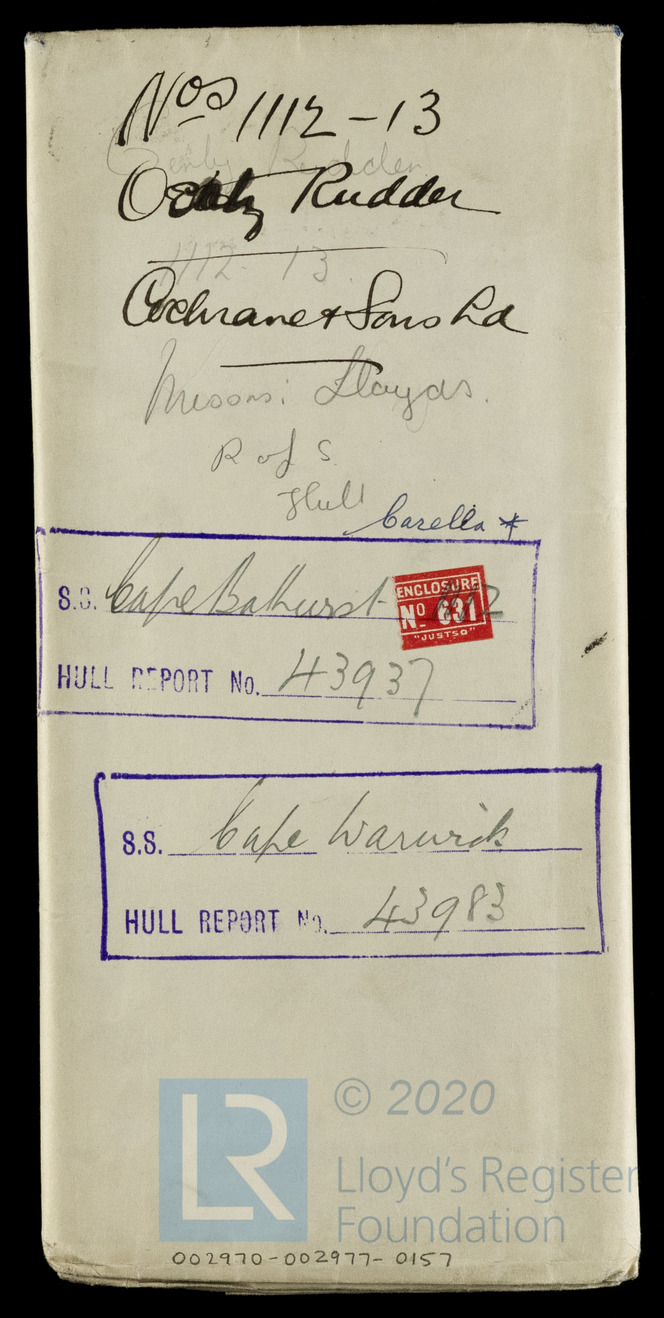 Nos 1112-13
Rudder
Rudder
1112-13
Cochrane & Sons Ld
Messrs: Lloyds.
R of S
Hull
Carella *
S.S. Cape Bathurst 1112
ENCLOSURE
No 631
"JUSTSO"
HULL REPORT No. 43937
S.S. Cape Warwick
HULL REPORT No. 43983
LR
© 2020
Lloyd's Register
Foundation
002970-002977-0157